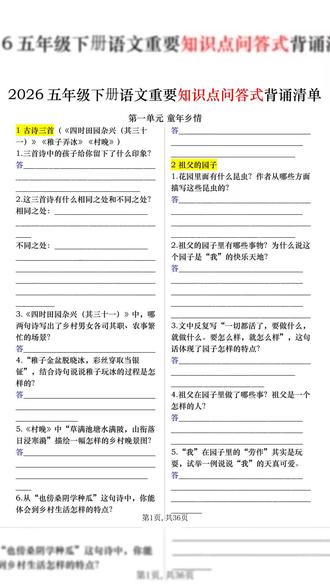 6 五年级下册语文重要知识点问答式背诵
2026 五年级下册语文重要知识点问答式背诵清单
第一单元 童年乡情
1 古诗三首（《四时田园杂兴（其三十一）》《稚子弄冰》《村晚》）
1.三首诗中的孩子给你留下了什么印象？
答
2.这三首诗有什么相同之处和不同之处？
相同之处：
不同之处：
3.《四时田园杂兴（其三十一）》中，哪
两句诗写出了乡村男女各司其职、农事繁
忙的场景？
答
4.“稚子金盆脱晓冰，彩丝穿取当银
钲”，结合诗句说说稚子玩冰的过程是怎
样的？
答
5.《村晚》中“草满池塘水满陂，山衔落
日浸寒漪”描绘一幅怎样的乡村晚景图？
答
6.从“也傍桑阴学种瓜”这句诗中，你能
体会到乡村生活怎样的特点？
答
2 祖父的园子
1.花园里面有什么昆虫？作者从哪些方面
描写这些昆虫的？
答
2.祖父的园子里有哪些事物？为什么说这
个园子是“我”的快乐天地？
答
3.文中反复写“一切都活了，要做什么，
就做什么。要怎么样，就怎么样”，这句
话体现了园子怎样的特点？
答
4.祖父在园子里做了哪些事？祖父是一个
怎样的人？
答
5.“我”在园子里的“劳作”其实是玩
耍，试举一例说说“我”的天真可爱。
答
第1页，共36页
“也傍桑阴学种瓜”这句诗中，你能
到乡村生活怎样的特点？
第1页，共36页